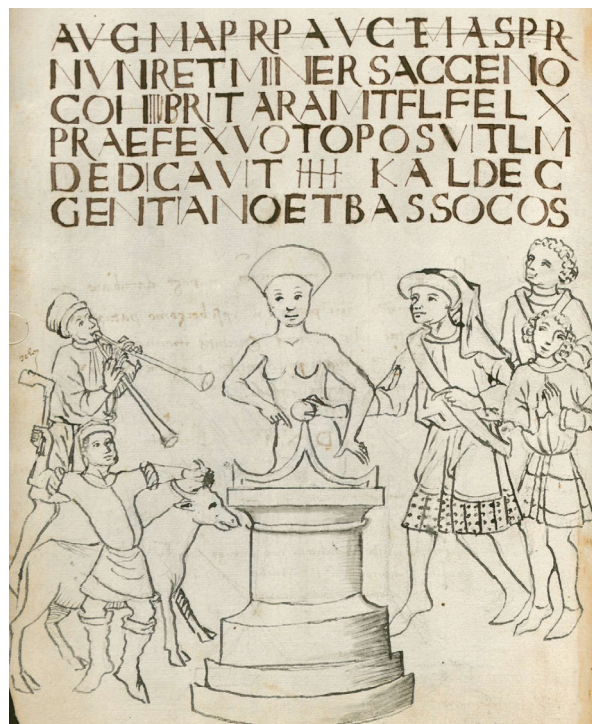 AVGMAPRPAVCTEMIASPR
NVNRETMIINERSACCENO
COHIIIIBRITARAMTFLFELX
PRAEFEXVOTOPOSVITLM
DEDICAVIT IIII KALDEC
GENTIANOETBASSOCOS